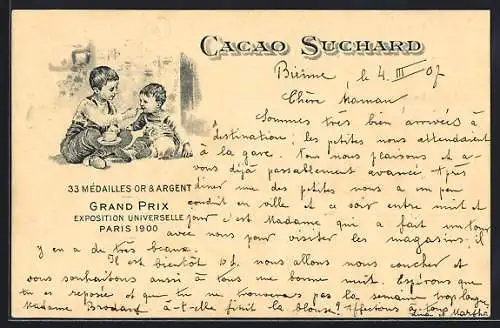 CACAO SUCHARD
33 MÉDAILLES OR & ARGENT
GRAND PRIX
EXPOSITION UNIVERSELLE
PARIS 1900
Bienne, le 4. III 07
Chère Maman
Sommes très bien arrivées à
destination; les petites nous attendaient
à la gare. Tous nous plaisons et a-
vons déjà passablement avancé. Après
dîner une des petites nous a un peu
conduit en ville et ce soir entre nuit et
jour c'est Madame qui a fait un tour
avec nous pour visiter les magasins; il
y en a de très beaux.
Il est bientôt 10 h. nous allons nous coucher et
vous souhaitons aussi à tous une bonne nuit. Espérons que
tu es reposée et que tu ne trouveras pas la semaine trop longue
Madame a-t-elle finit la blouse?
et Marthe